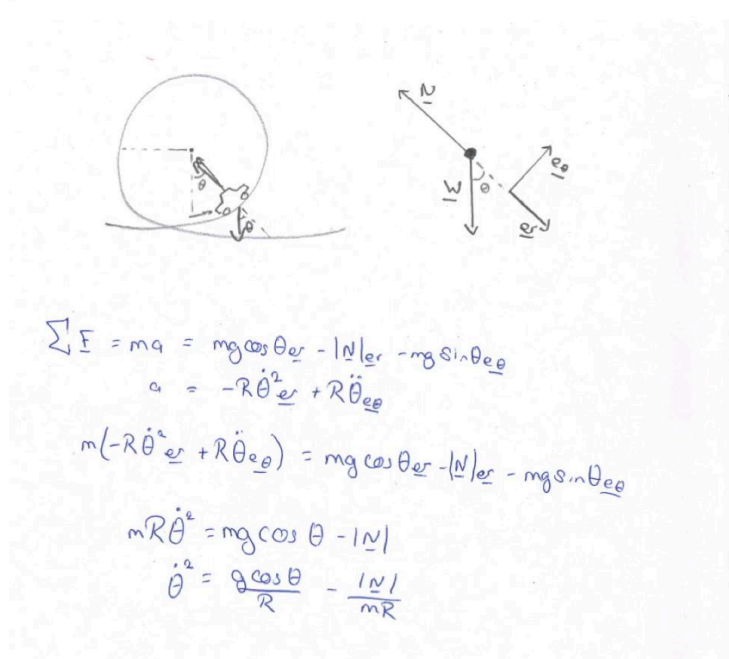 θ
θ
N
W
θ
eθ
er
∑F = ma = mgcosθer - |N|er - mgsinθeθ
a = -Rθ̇²er + Rθ̈eθ
m(-Rθ̇²er + Rθ̈eθ) = mgcosθer - |N|er - mgsinθeθ
mRθ̇² = mgcosθ - |N|
θ̇² = gcosθ/R - |N|/mR